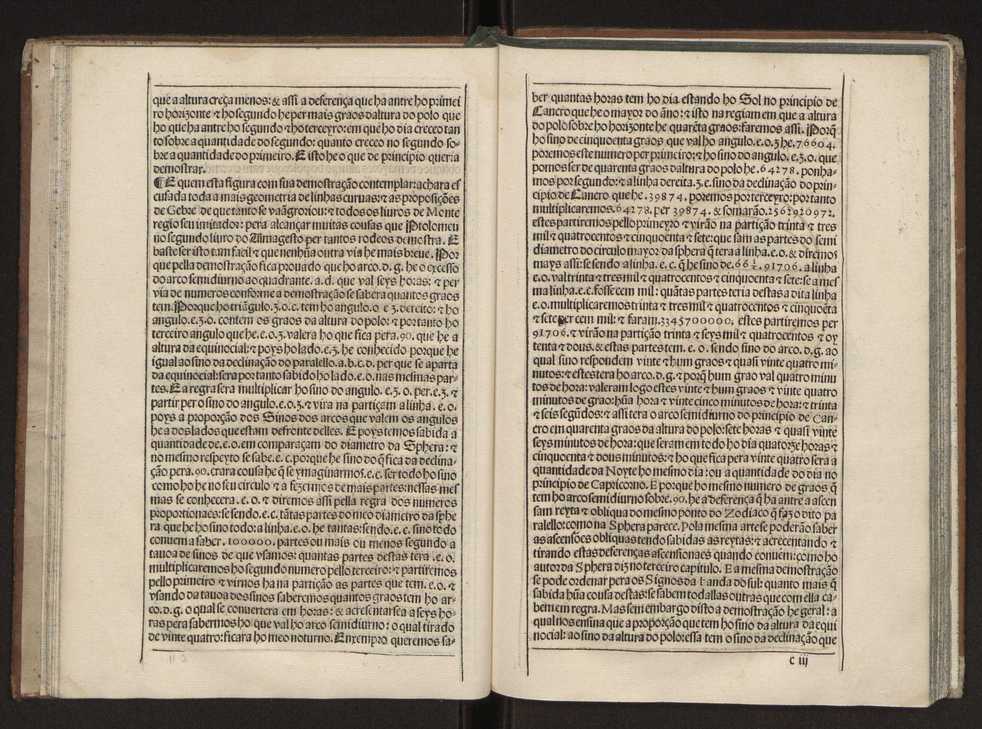 que a altura creça menos: & assi a deferença que ha antre ho primei
ro horizonte & ho segundo he per mais graos daltura do polo que
ho que ha antre ho segundo & ho terceyro: em que ho dia creceo tan
to sobre a quantidade do segundo: quanto creceo no segundo so-
bre a quantidade do primeiro. E isto he o que de principio queria
demostrar.
¶ E quem esta figura com sua demostração contemplar: achara es
cusada toda a mais geometria de linhas curuas: & as proposições
de Gebre de que tanto se vãgloriou: & todos os liuros de Monte
regio seu imitador: pera alcançar muitas cousas que Ptolomeu
no segundo liuro do Almagesto per tantos rodeos demostra. E
baste ser isto tam facil & que nenhũa outra via he mais breue. Por
que pella demostração fica prouado que ho arco .d.g. he o excesso
do arco semidiurno ao quadrante .a.d. que val seys horas: & per
via de numeros conforme a demostração se sabera quantos graos
tem. Porque ho triãgulo .ʒ.o.e. tem ho angulo .o e ʒ. dereito: & ho
angulo .e.ʒ.o. contem os graos da altura do polo: & portanto ho
terceiro angulo que he .e.o.ʒ. valera ho que fica pera .90. que he a
altura da equinocial: & poys ho lado .e.ʒ. he conhecido porque he
igual ao sino da declinação do paralello .a.b.c.d. per que se aparta
da equinocial: sera por tanto sabido ho lado .e.o. nas mesmas par-
tes. E a regra sera multiplicar ho sino do angulo .e.ʒ.o. per .e.ʒ. &
partir per o sino do angulo .e.o.ʒ. & vira na partiçam a linha .e.o.
poys a proporção dos Sinos dos arcos que valem os angulos
he a dos lados que estam defronte delles. E poys temos sabida a
quantidade de .e.o. em comparaçam do diametro da Sphera: &
no mesmo respeyto se sabe .e.c. porque he sino do q̃ fica da declina-
ção pera .90. crara cousa he q̃ se ymaginarmos .e.c. ser todo ho sino
como ho he no seu circulo & a fezermos de mais partes: nessas mes
mas se conhecera .e.o. & diremos assi pella regra dos numeros
proporcionaes: se sendo .e.c. tãtas partes do meo diametro da sphe
ra que he ho sino todo: a linha .e.o. he tantas: sendo .e.c. sino todo
conuem a saber .100000. partes ou mais ou menos segundo a
tauoa de sinos de que vsamos: quantas partes destas tera .e.o.
multiplicaremos ho segundo numero pello terceiro: & partiremos
pello primeiro & virnos ha na partição as partes que tem .e.o. &
vsando da tauoa dos sinos saberemos quantos graos tem ho ar-
co .d.g. o qual se conuertera em horas: & acrescentarsea a seys ho-
ras pera sabermos ho que val ho arco semidiurno: o qual tirado
de vinte quatro: ficara ho meo noturno. Enxempro queremos sa-
ber quantas horas tem ho dia estando ho Sol no principio de
Cancro que he o mayor do ãno: & isto na regiam em que a altura
do polo sobre ho horizonte he quarẽta graos: faremos assi. Porq̃
ho sino de cinquoenta graos que val ho angulo .e.o.ʒ he .76604.
poremos este numero per primeiro: & ho sino do angulo .e.ʒ.o. que
pomos ser de quarenta graos daltura do polo he .64278. ponha-
mos por segundo: & a linha dereita .ʒ.e. sino da declinação do prin-
cipio de Cancro que he .39874. poremos por terceyro: portanto
multiplicaremos .64278. per 39874. & somarão .2562920972.
estes partiremos pello primeyro & virão na partição trinta & tres
mil & quatrocentos & cinquoenta & sete: que sam as partes do semi
diametro do circulo mayor da sphera q̃ tera a linha .e.o. & diremos
mays assi: se sendo a linha .e.c. q̃ he sino de .66½. 91706. a linha
e.o. val trinta & tres mil & quatrocentos & cinquoenta & sete: se a mes
ma linha .e.c. fosse cem mil: quãtas partes teria destas a dita linha
e.o. multiplicaremos trinta & tres mil & quatrocentos & cinquoẽta
& sete per cem mil: & faram .3345700000. estes partiremos per
91706. & virão na partição trinta & seys mil & quatrocentos & oy
tenta & dous. & estas partes tem .e.o. sendo sino do arco .d.g. ao
qual sino respondem vinte & hum graos & quasi vinte quatro mi-
nutos: & estes tera ho arco .d.g. & porq̃ hum grao val quatro minu
tos de hora: valeram logo estes vinte & hum graos & vinte quatro
minutos de grao: hũa hora & vinte cinco minutos de hora: & trinta
& seis segũdos: & assi tera o arco semidiurno do principio de Can-
cro em quarenta graos da altura do polo: sete horas & quasi vinte
seys minutos de hora: que seram em todo ho dia quatorze horas &
cinquoenta & dous minutos: & ho que fica pera vinte quatro sera a
quantidade da Noyte ho mesmo dia: ou a quantidade do dia no
principio de Capricorno. E porque ho mesmo numero de graos q̃
tem ho arco semidiurno sobre .90. he a deferença q̃ ha antre a ascen
sam reyta & obliqua do mesmo ponto do Zodiaco q̃ fazo dito pa
ralello: como na Sphera parece. Pola mesma arte se poderão saber
as ascensões obliquas tendo sabidas as reytas: & acrecentando &
tirando estas deferenças ascensionaes quando conuem: como ho
autor da Sphera diz no terceiro capitulo. E a mesma demostração
se pode ordenar pera os Signos da banda do sul: quanto mais q̃
sabida hũa cousa destas: se sabem todallas outras que com ella ca-
bem em regra. Mas sem embargo disto a demostração he geral: a
qual nos ensina que a proporção que tem ho sino da altura da equi
nocial: ao sino da altura do polo: essa tem o sino da declinação que
C iij